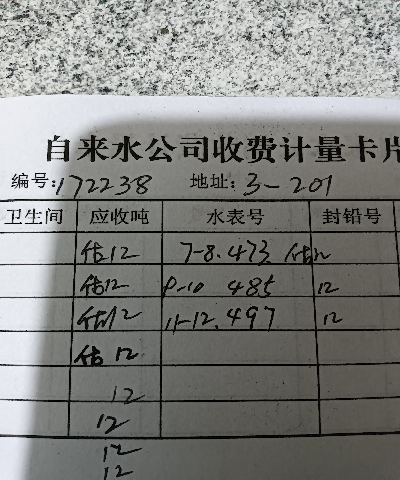 自来水公司收费计量卡片
编号:172238 地址:3-201
卫生间 应收吨 水表号 封铅号
估12 7-8.473 估12
估12 9-10 485 12
估12 11-12.497 12
估 12
12
12
12
12